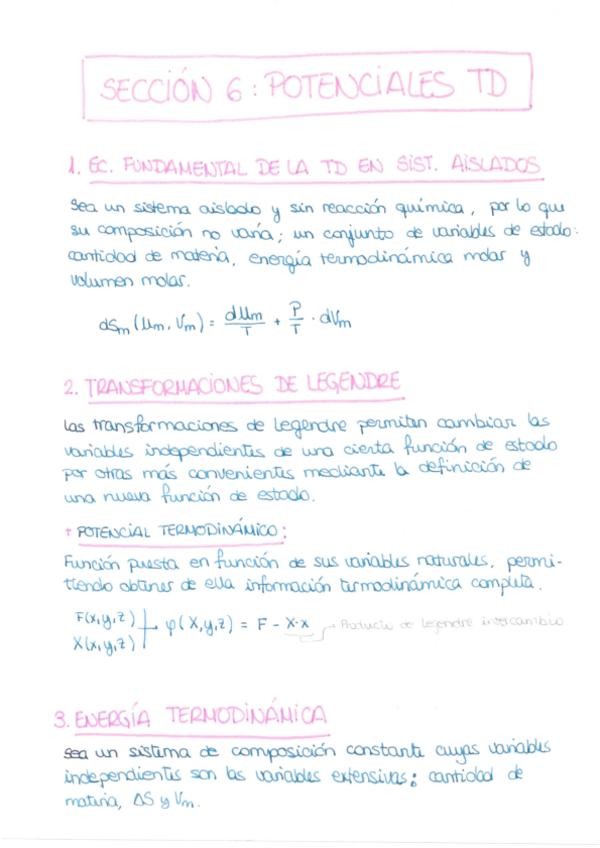 SECCIÓN 6: POTENCIALES TD
1. EC. FUNDAMENTAL DE LA TD EN SIST. AISLADOS
Sea un sistema aislado y sin reacción química, por lo que
su composición no varía; un conjunto de variables de estado:
cantidad de materia, energía termodinámica molar y
volumen molar.
dSm (Um, Vm) = dUm/T + P/T · dVm
2. TRANSFORMACIONES DE LEGENDRE
Las transformaciones de Legendre permiten cambiar las
variables independientes de una cierta función de estado
por otras más convenientes mediante la definición de
una nueva función de estado.
+ POTENCIAL TERMODINÁMICO:
Función puesta en función de sus variables naturales, permi-
tiendo obtener de ella información termodinámica completa.
F(x,y,z)
X(x,y,z)
φ(X,y,z) = F - X·x → Producto de Legendre intercambio
3. ENERGÍA TERMODINÁMICA
Sea un sistema de composición constante cuyas variables
independientes son las variables extensivas: cantidad de
materia, ΔS y Vm.